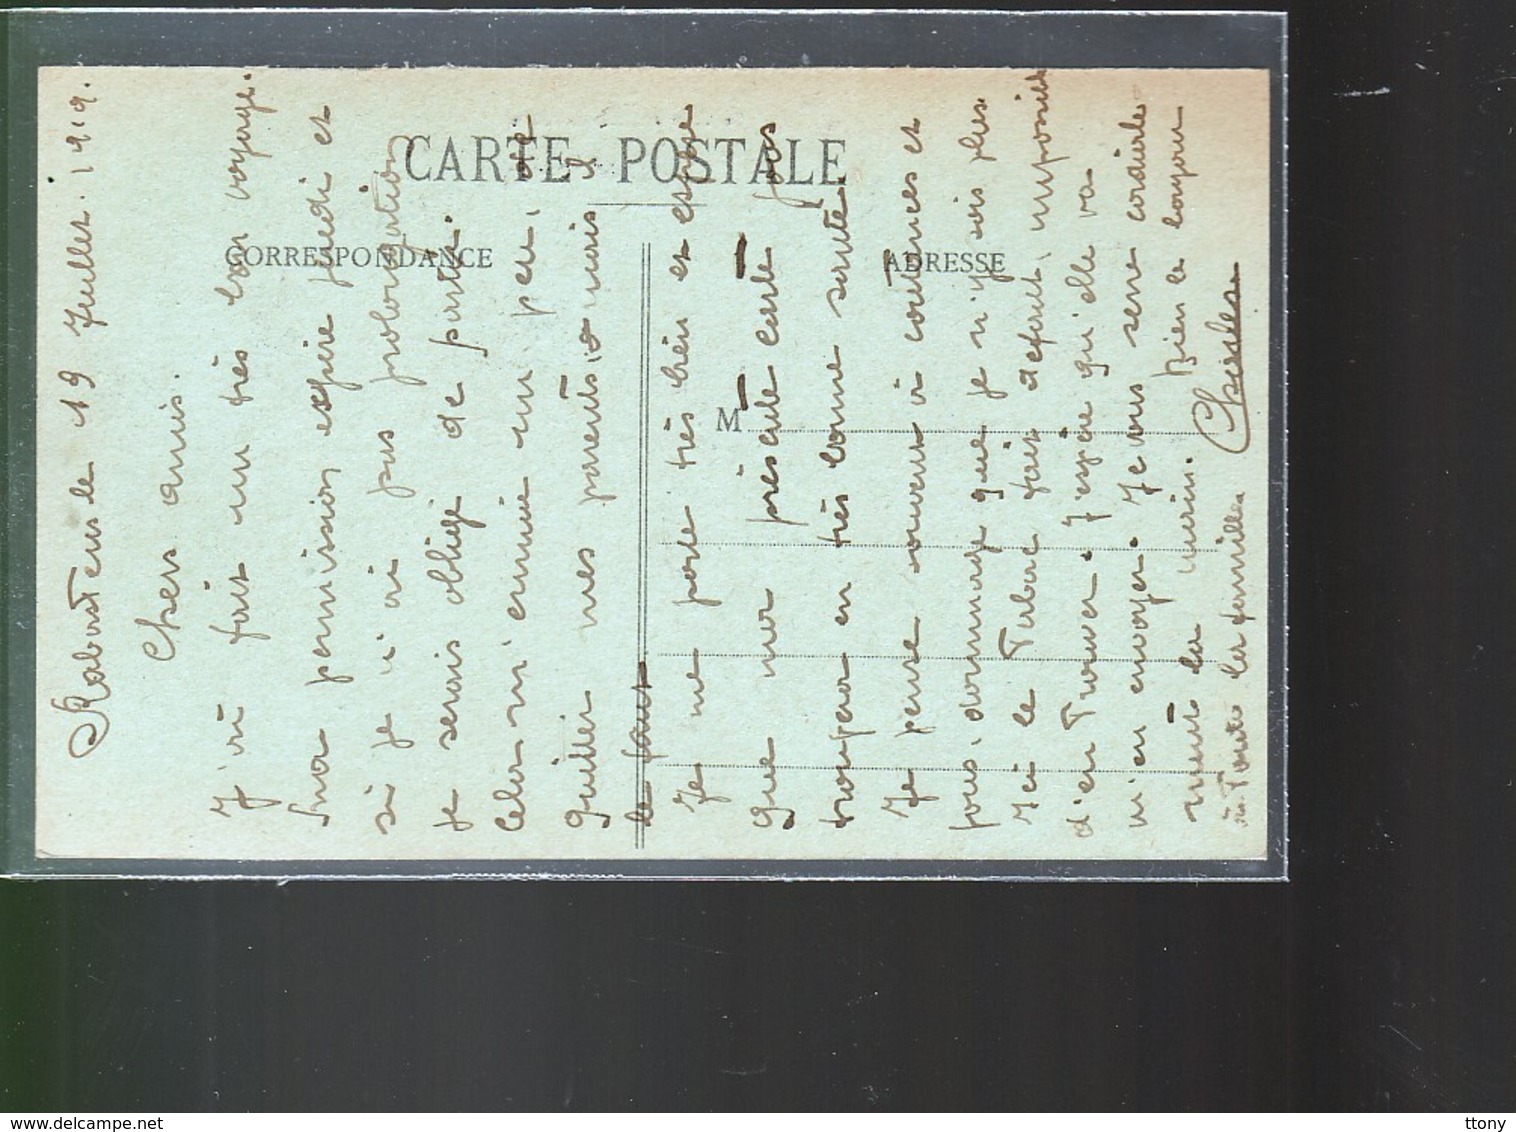 CARTE POSTALE
CORRESPONDANCE
ADRESSE
M
Rabastens le 19 Juillet 1919.
Chers amis.
J'ai fait un très bon voyage.
Ma permission expire jeudi et
si je n'ai pas prolongation
je serais obligé de partir.
Cela m'ennuie un peu, de
quitter mes parents, mais
il le faut
Je me porte très bien et espère
que ma présente carte vous
trouvera en très bonne santé.
Je pense souvent à Coutances et
vous, dommage que je n'y sois plus.
Ici le Tabac fait defaut, impossible
d'en trouver. J'espère qu'elle va
m'en envoyer. Je vous serre cordiale
ment la main. Bien le bonjour
à toute la famille
Charles
www.delcampe.net
ttony